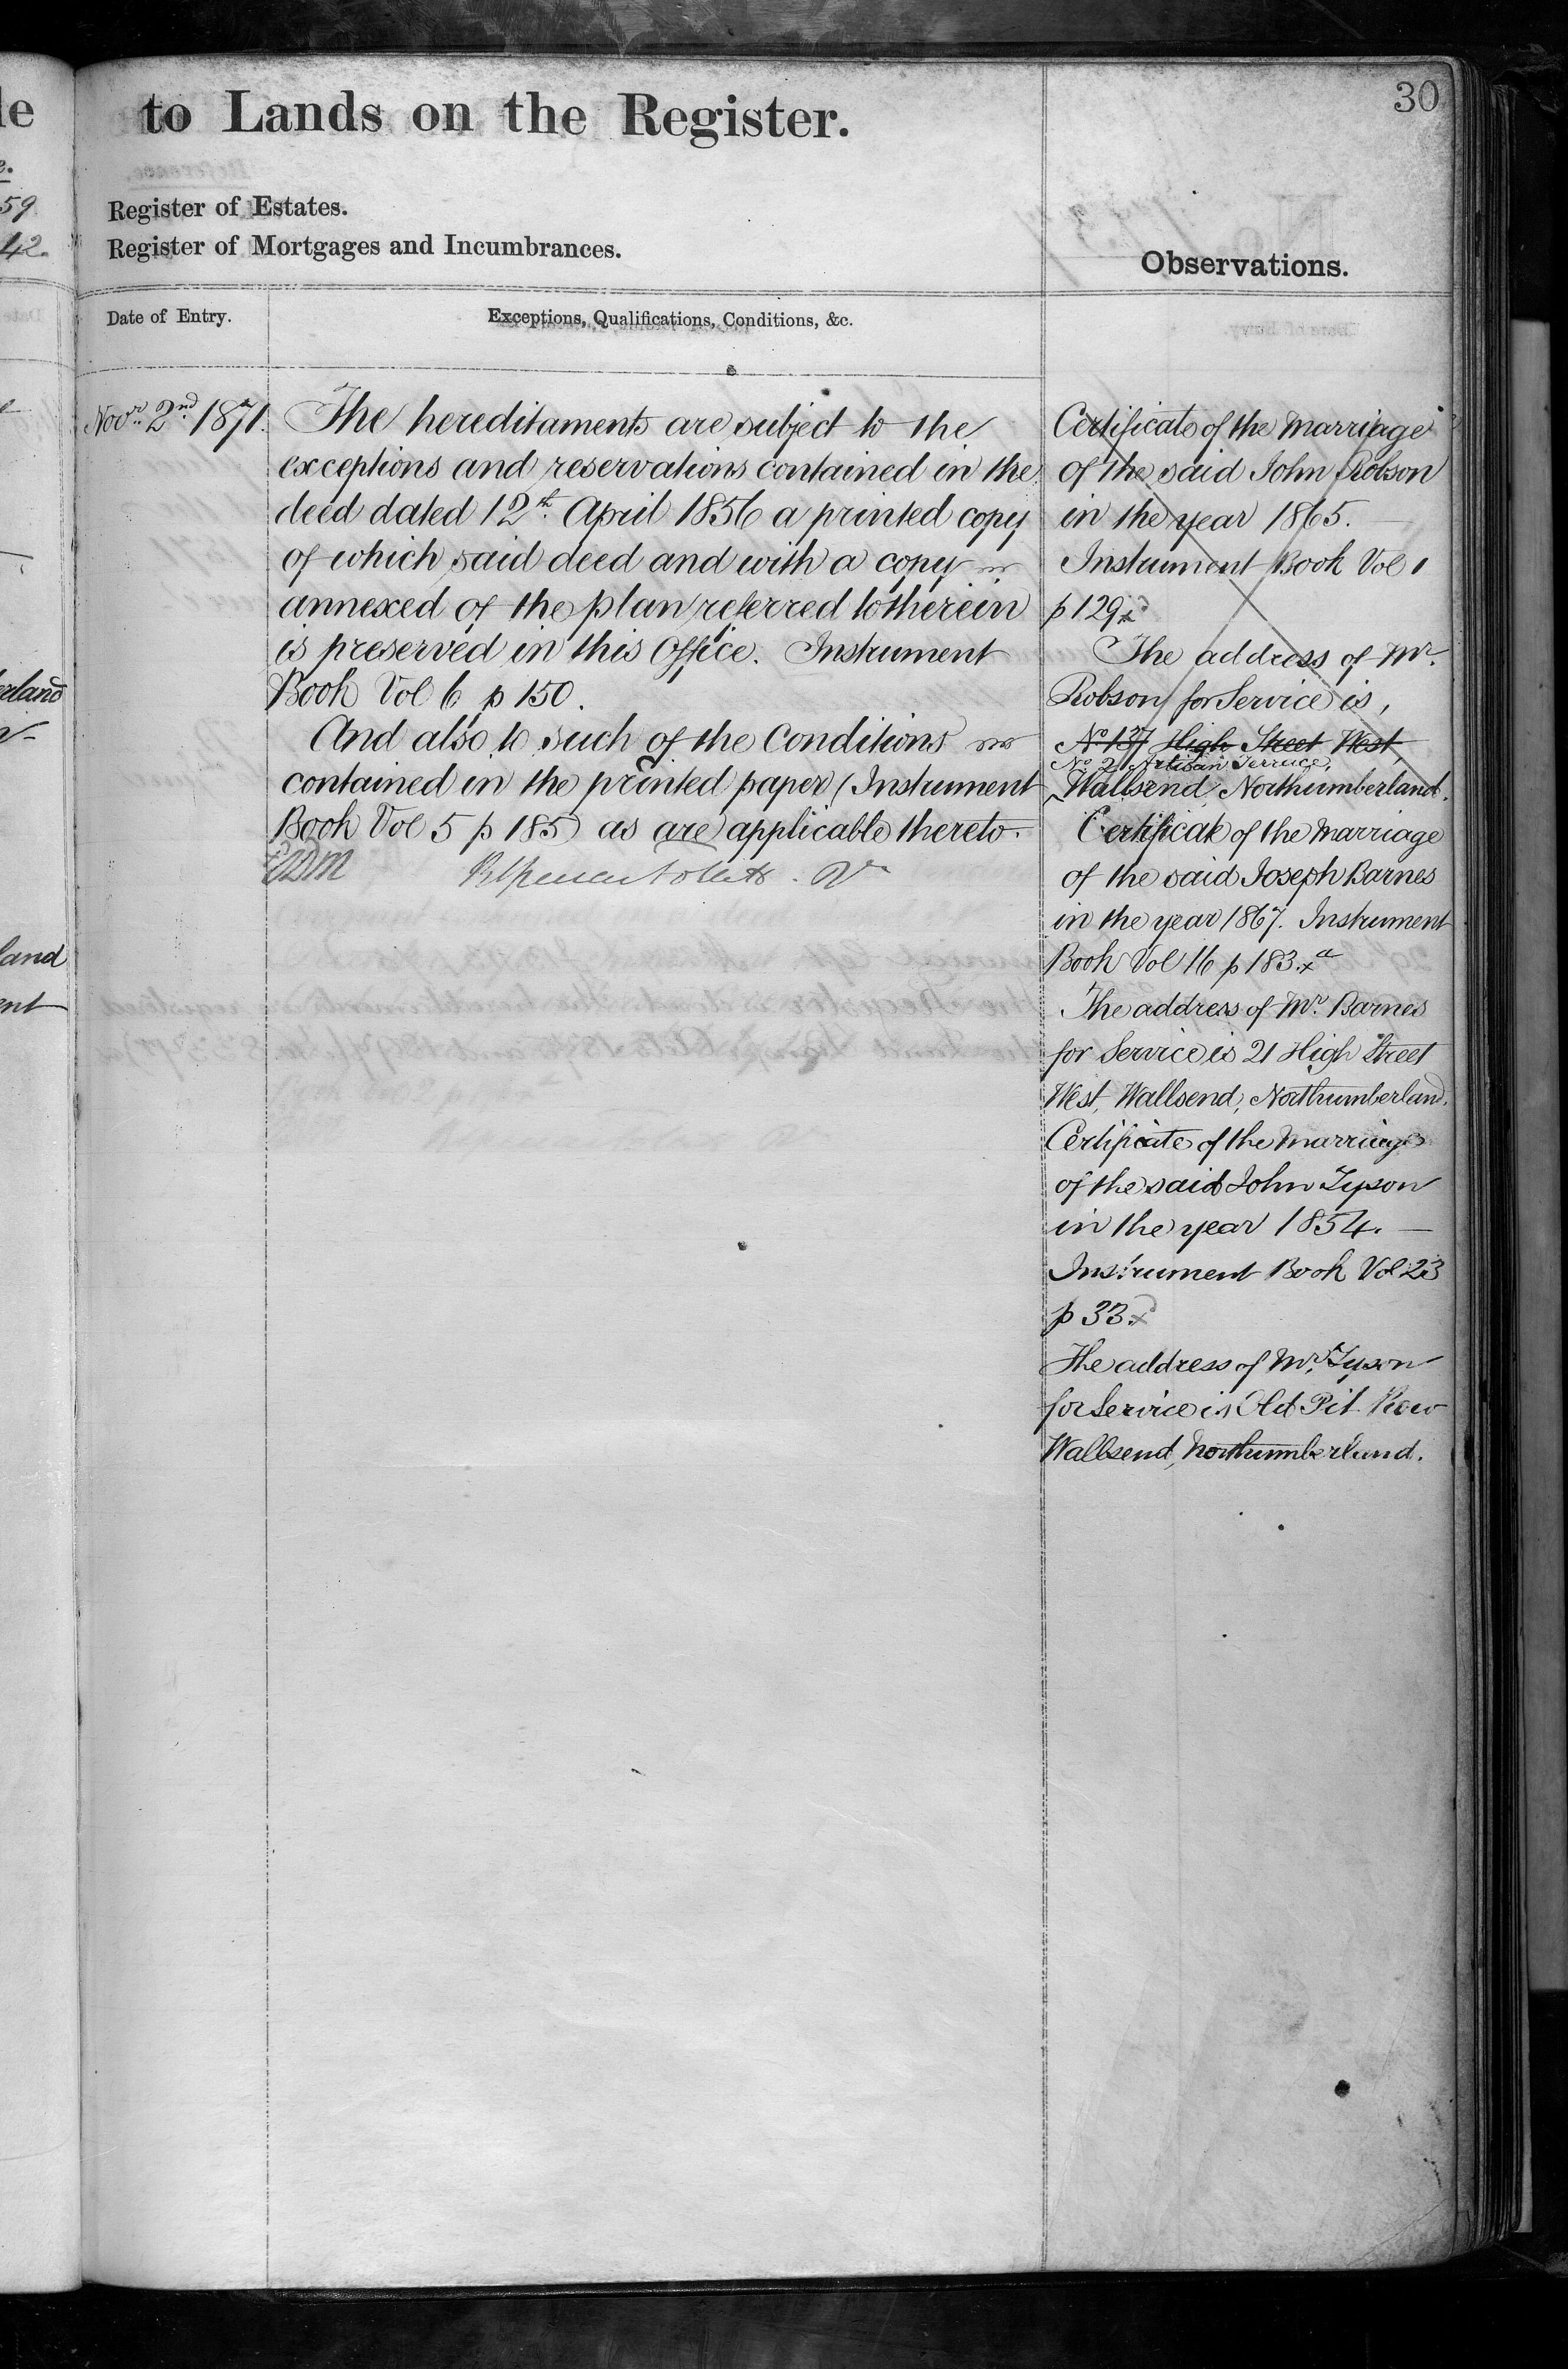 le
to Lands on the Register.
30
59
42.
Register of Estates.
Register of Mortgages and Incumbrances.
Observations.
Date of Entry.
Exceptions, Qualifications, Conditions, &c.
Novr. 2nd. 1871.
The hereditaments are subject to the
exceptions and reservations contained in the
deed dated 12th. April 1856 a printed copy
of which said deed and with a copy
annexed of the plan referred to therein
is preserved in this Office. Instrument
Book Vol 6 p 150.
And also to such of the Conditions
contained in the printed paper (Instrument
Book Vol 5 p 185) as are applicable thereto.
erland
land
ent
Certificate of the Marriage
of the said John Robson
in the year 1865.
Instrument Book Vol 1
p 129 x
The address of Mr.
Robson for Service is,
No 137 High Street West,
No. 2 Artisan Terrace,
Wallsend, Northumberland.
Certificate of the Marriage
of the said Joseph Barnes
in the year 1867. Instrument
Book Vol 16 p 183. x
The address of Mr. Barnes
for Service is 21 High Street
West, Wallsend, Northumberland.
Certificate of the Marriage
of the said John Tyson
in the year 1854. —
Instrument Book Vol 23
p 33. x
The address of Mr. Tyson
for Service is Old Pit Row
Wallsend, Northumberland.